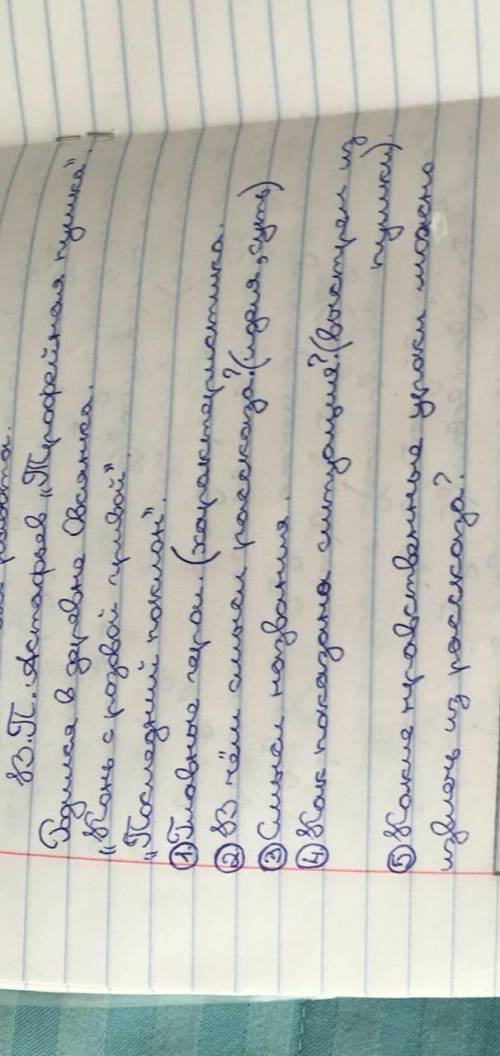 работа.
В. П. Астафьев „Трофейная пушка".
Родился в деревне Овсянка.
„Конь с розвой гривой"
„Последний поклон".
① Главные герои. (характеристика.
② В чём смысл рассказа? (идея, суть)
③ Смысл названия.
④ Как показана ситуация? (выстрел из
пушки)
⑤ Какие нравственные уроки можно
извлечь из рассказа?